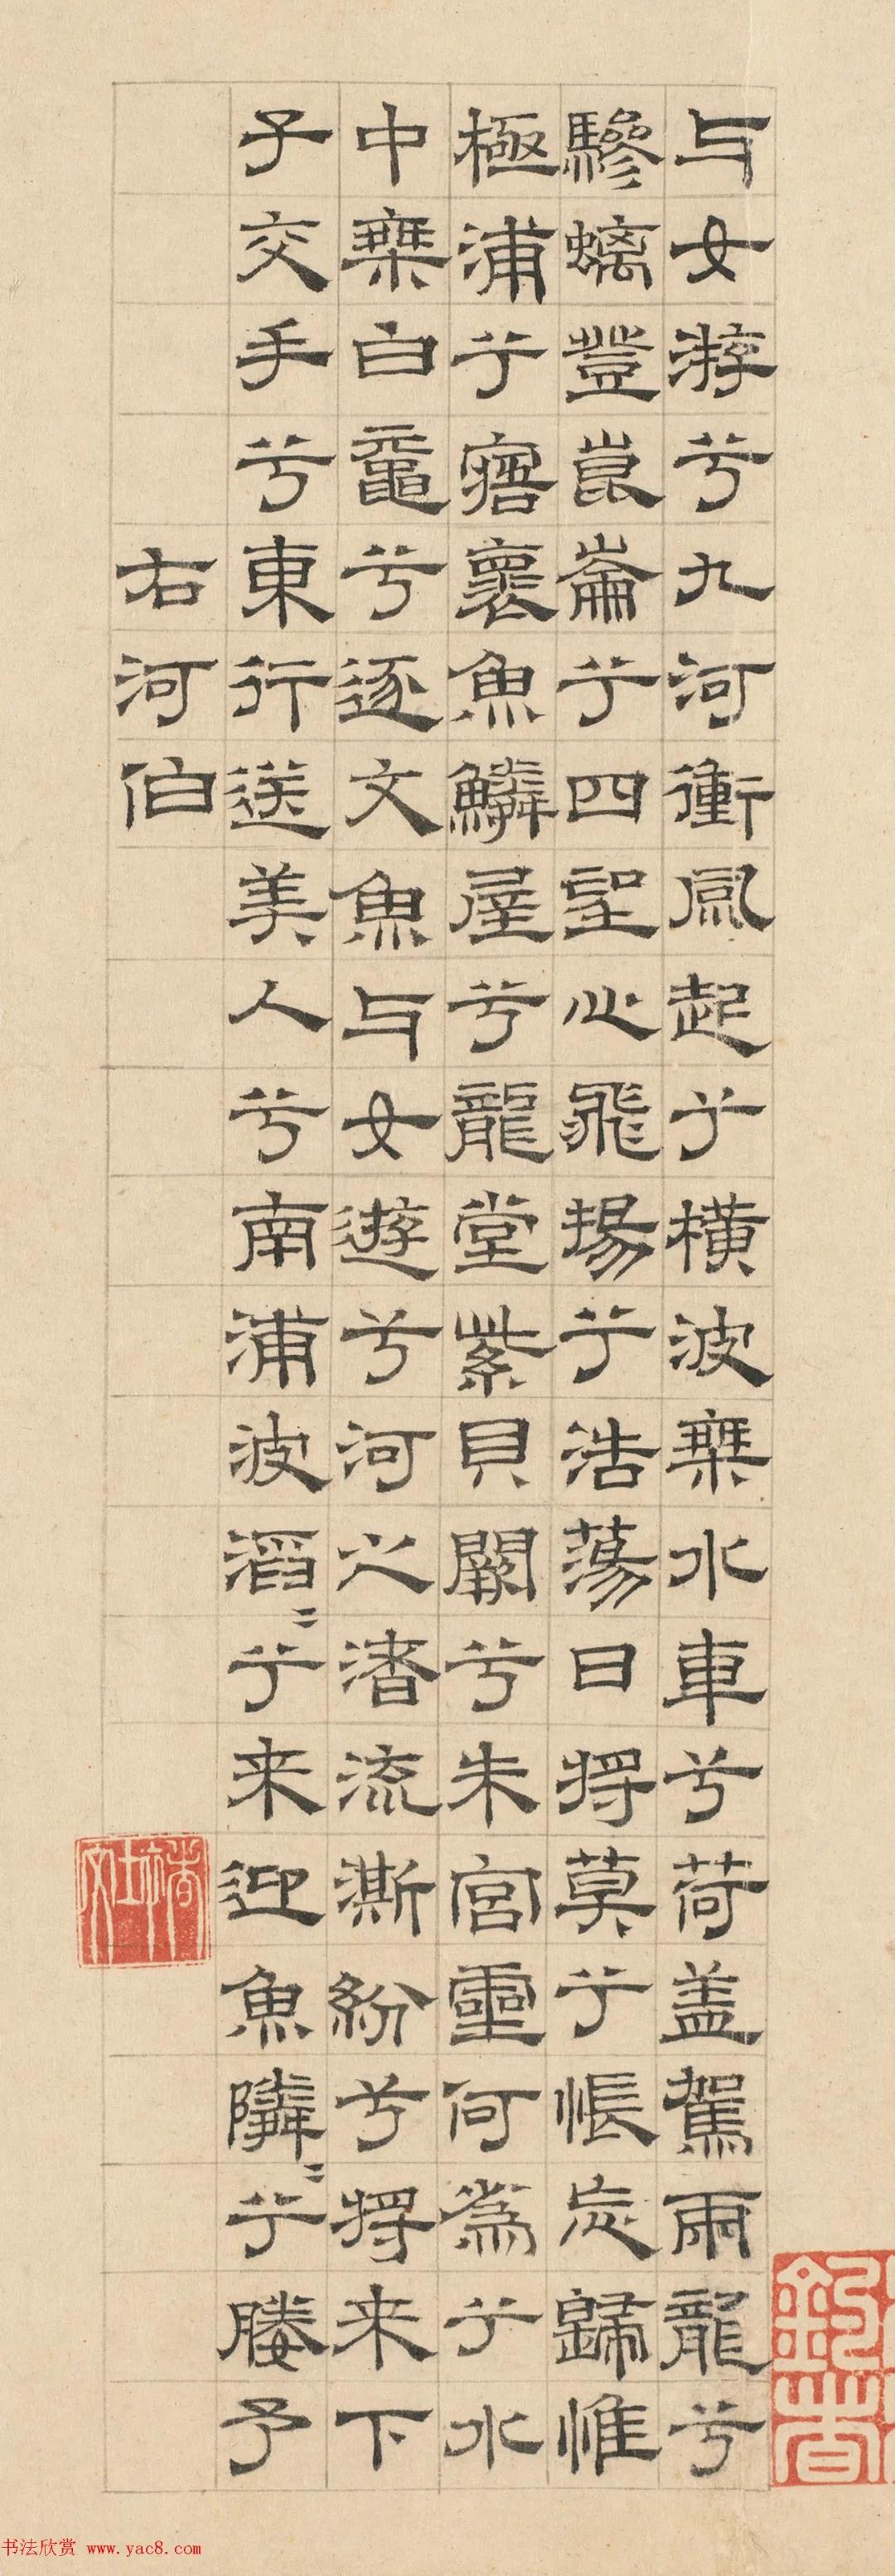 与女游兮九河衝風起兮橫波椉水車兮荷盖駕兩龍兮
驂螭登崑崙兮四望心飛揚兮浩蕩日將莫兮悵忘歸惟
極浦兮寤褱魚鱗屋兮龍堂紫貝闕兮朱宮靈何為兮水
中椉白黿兮逐文魚与女遊兮河之渚流澌紛兮將来下
子交手兮東行送美人兮南浦波滔〻兮来迎魚隣〻兮媵予
右河伯
书法欣赏 www.yac8.com